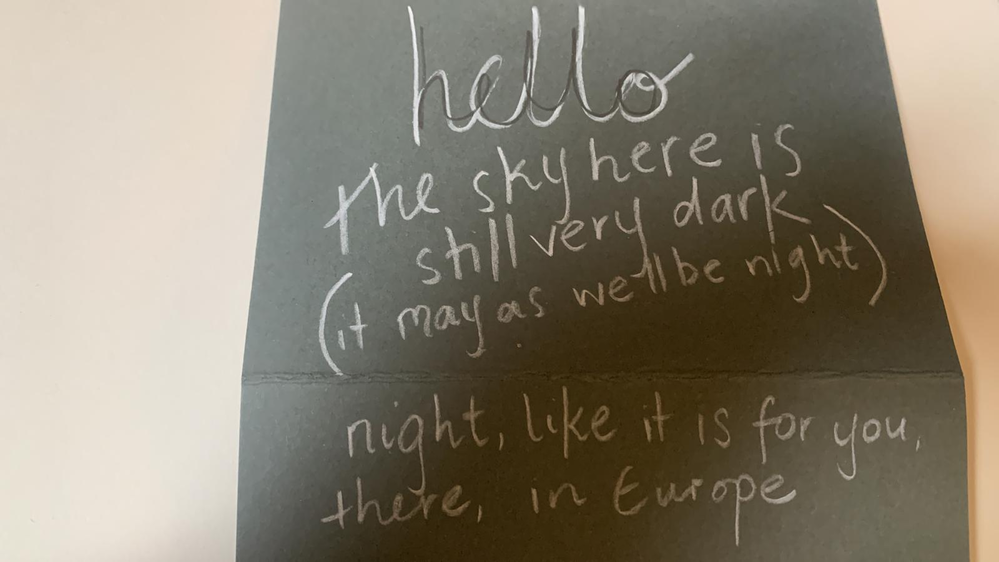 hello
the sky here is
still very dark
(it may as well be night)
night, like it is for you,
there, in Europe